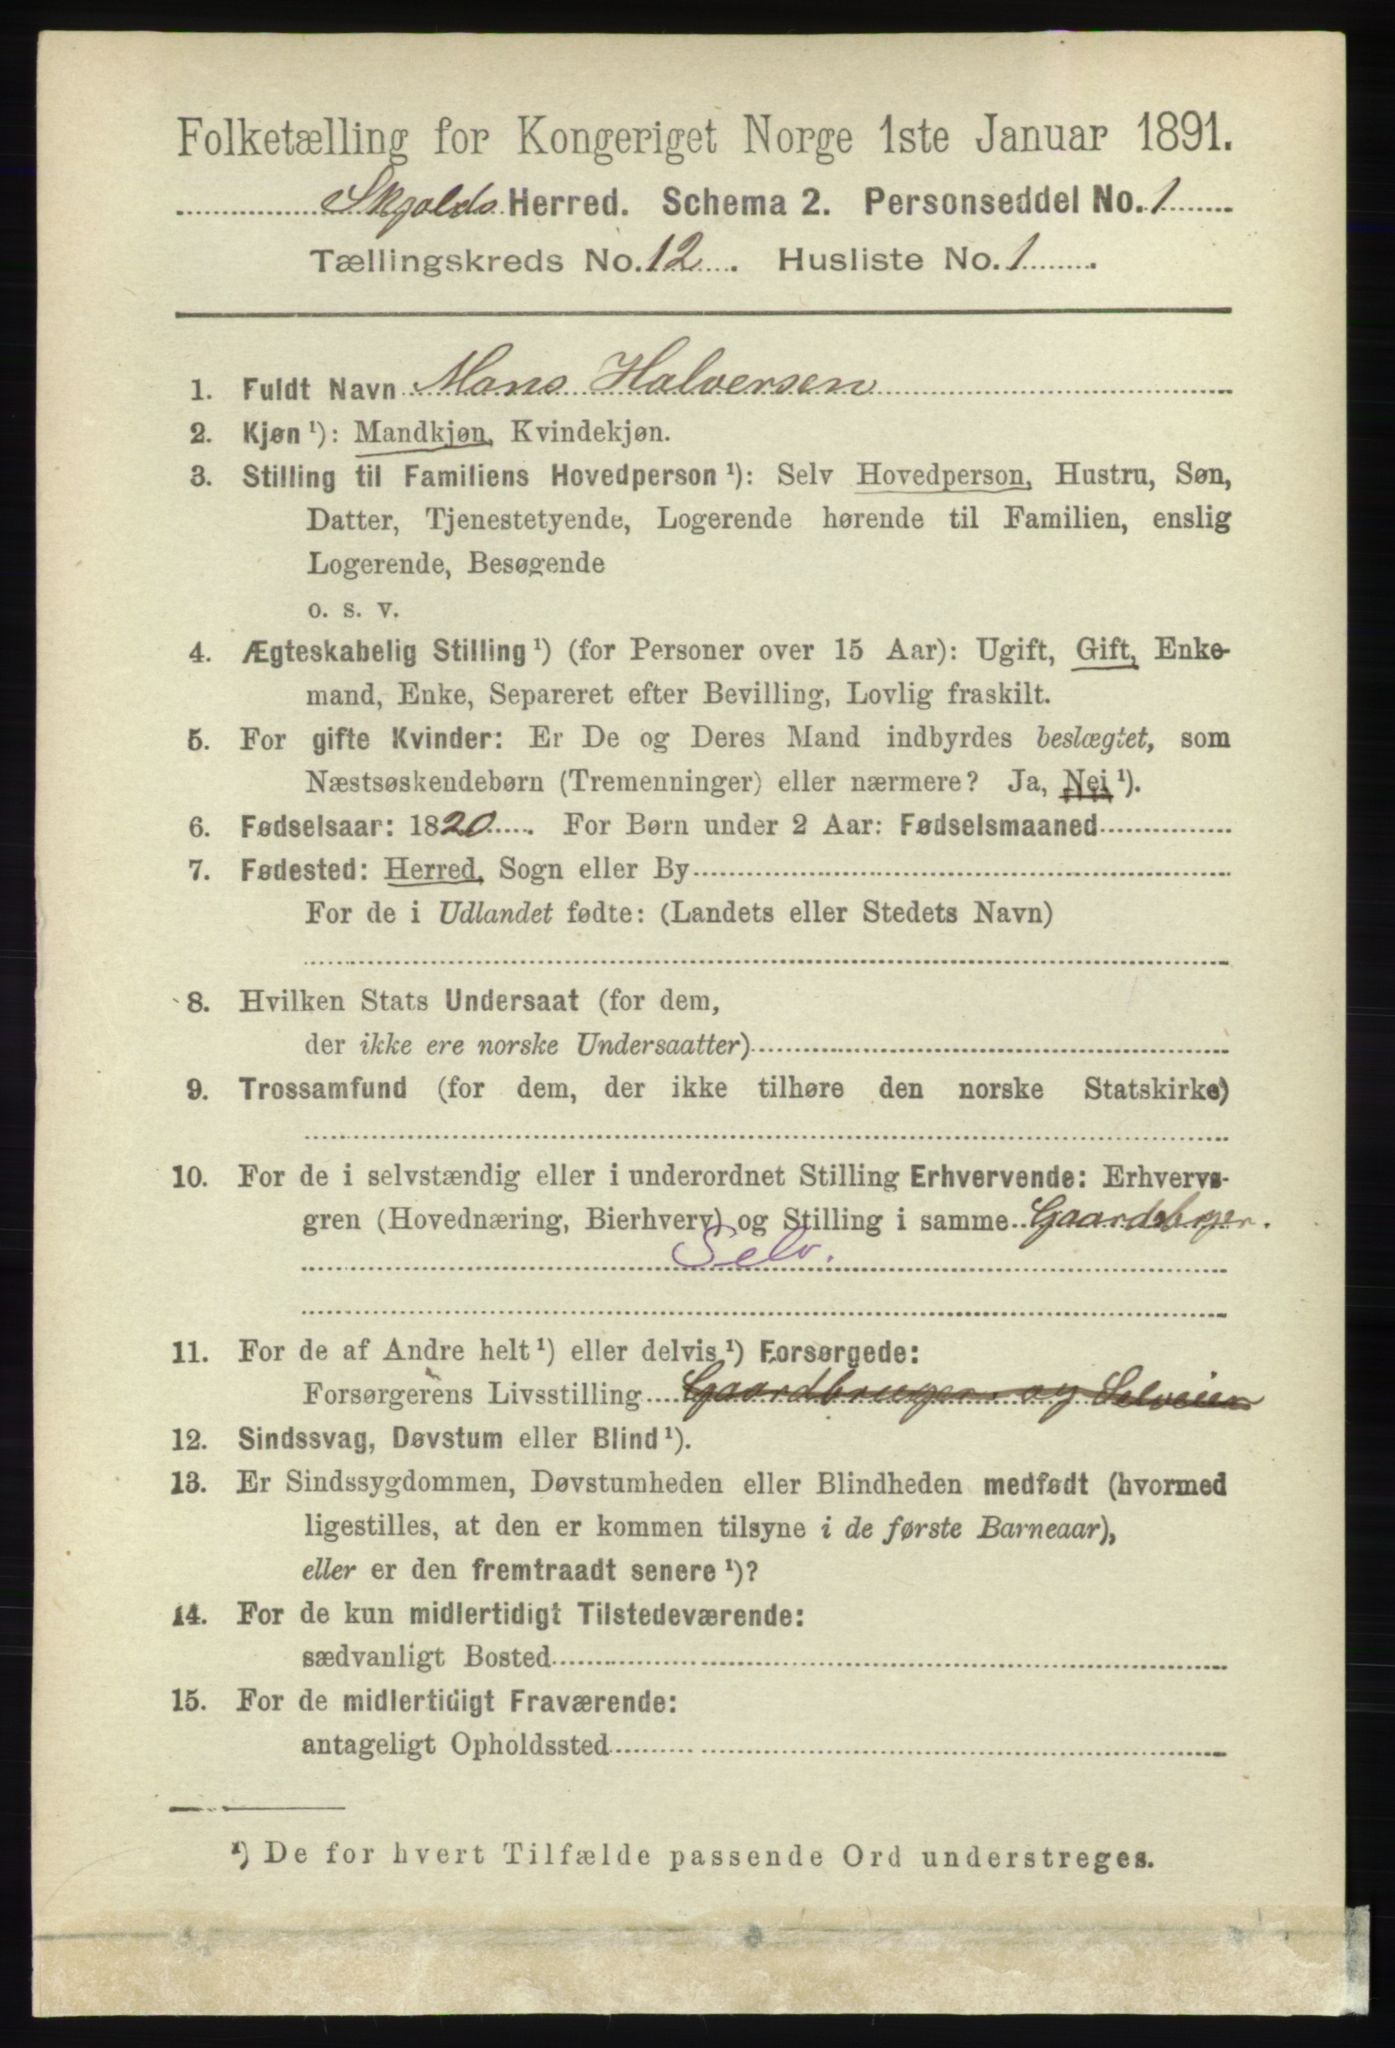 Folketælling for Kongeriget Norge 1ste Januar 1891.
Skjolds Herred. Schema 2. Personseddel No. 1
Tællingskreds No. 12. Husliste No. 1.
1. Fuldt Navn Mons Halversen
2. Kjøn ¹): Mandkjøn, Kvindekjøn.
3. Stilling til Familiens Hovedperson ¹): Selv Hovedperson, Hustru, Søn,
Datter, Tjenestetyende, Logerende hørende til Familien, enslig
Logerende, Besøgende
o. s. v.
4. Ægteskabelig Stilling ¹) (for Personer over 15 Aar): Ugift, Gift, Enke-
mand, Enke, Separeret efter Bevilling, Lovlig fraskilt.
5. For gifte Kvinder: Er De og Deres Mand indbyrdes beslægtet, som
Næstsøskendebørn (Tremenninger) eller nærmere? Ja, Nei ¹).
6. Fødselsaar: 1820. For Børn under 2 Aar: Fødselsmaaned
7. Fødested: Herred, Sogn eller By
For de i Udlandet fødte: (Landets eller Stedets Navn)
8. Hvilken Stats Undersaat (for dem,
der ikke ere norske Undersaatter)
9. Trossamfund (for dem, der ikke tilhøre den norske Statskirke)
10. For de i selvstændig eller i underordnet Stilling Erhvervende: Erhvervs-
gren (Hovednæring, Bierhverv) og Stilling i samme Gaardbruger.
Selv.
11. For de af Andre helt ¹) eller delvis ¹) Forsørgede:
Forsørgerens Livsstilling Gaardbruger og Selveier
12. Sindssvag, Døvstum eller Blind ¹).
13. Er Sindssygdommen, Døvstumheden eller Blindheden medfødt (hvormed
ligestilles, at den er kommen tilsyne i de første Barneaar),
eller er den fremtraadt senere ¹)?
14. For de kun midlertidigt Tilstedeværende:
sædvanligt Bosted
15. For de midlertidigt Fraværende:
antageligt Opholdssted
¹) De for hvert Tilfælde passende Ord understreges.